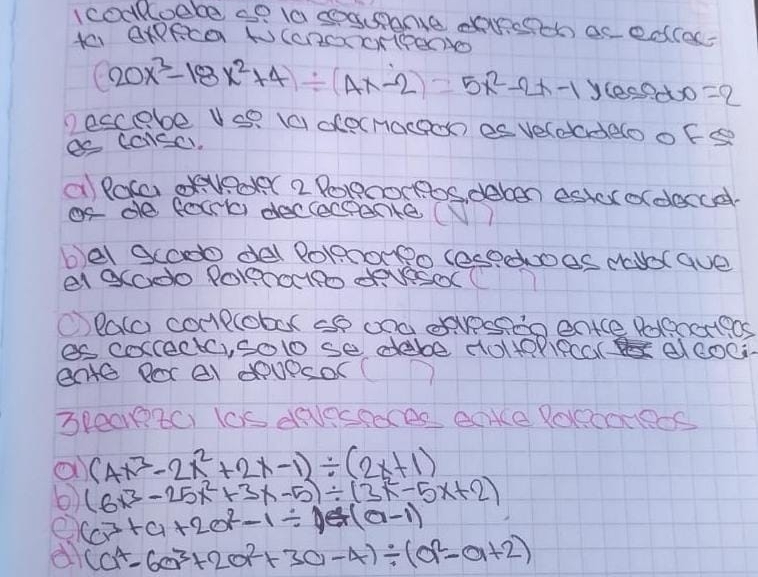 1 compruebe si la siguiente división es correc-
ta explica tu razonamiento
(20x³-18x²+4) ÷ (4x-2) = 5x²-2x-1 y residuo = 2
2 escribe V si la afirmación es verdadero o F si
es falsa.
a) Para dividir 2 Polinomios, deben estar ordenad-
os de forma decreciente (V)
b) el grado del Polinomio residuo es mayor que
el grado Polinomio divisor ( )
c) Para comprobar si una división entre Polinomios
es correcta, solo se debe multiplicar el coci-
ente Por el divisor ( )
3 Realiza las divisiones entre Polinomios
a) (4x³-2x²+2x-1) ÷ (2x+1)
b) (6x³-25x²+3x-5) ÷ (3x²-5x+2)
c) (a³+a+2a²-1 ÷ (a-1)
d) (a⁴-6a³+2a²+3a-4) ÷ (a²-a+2)